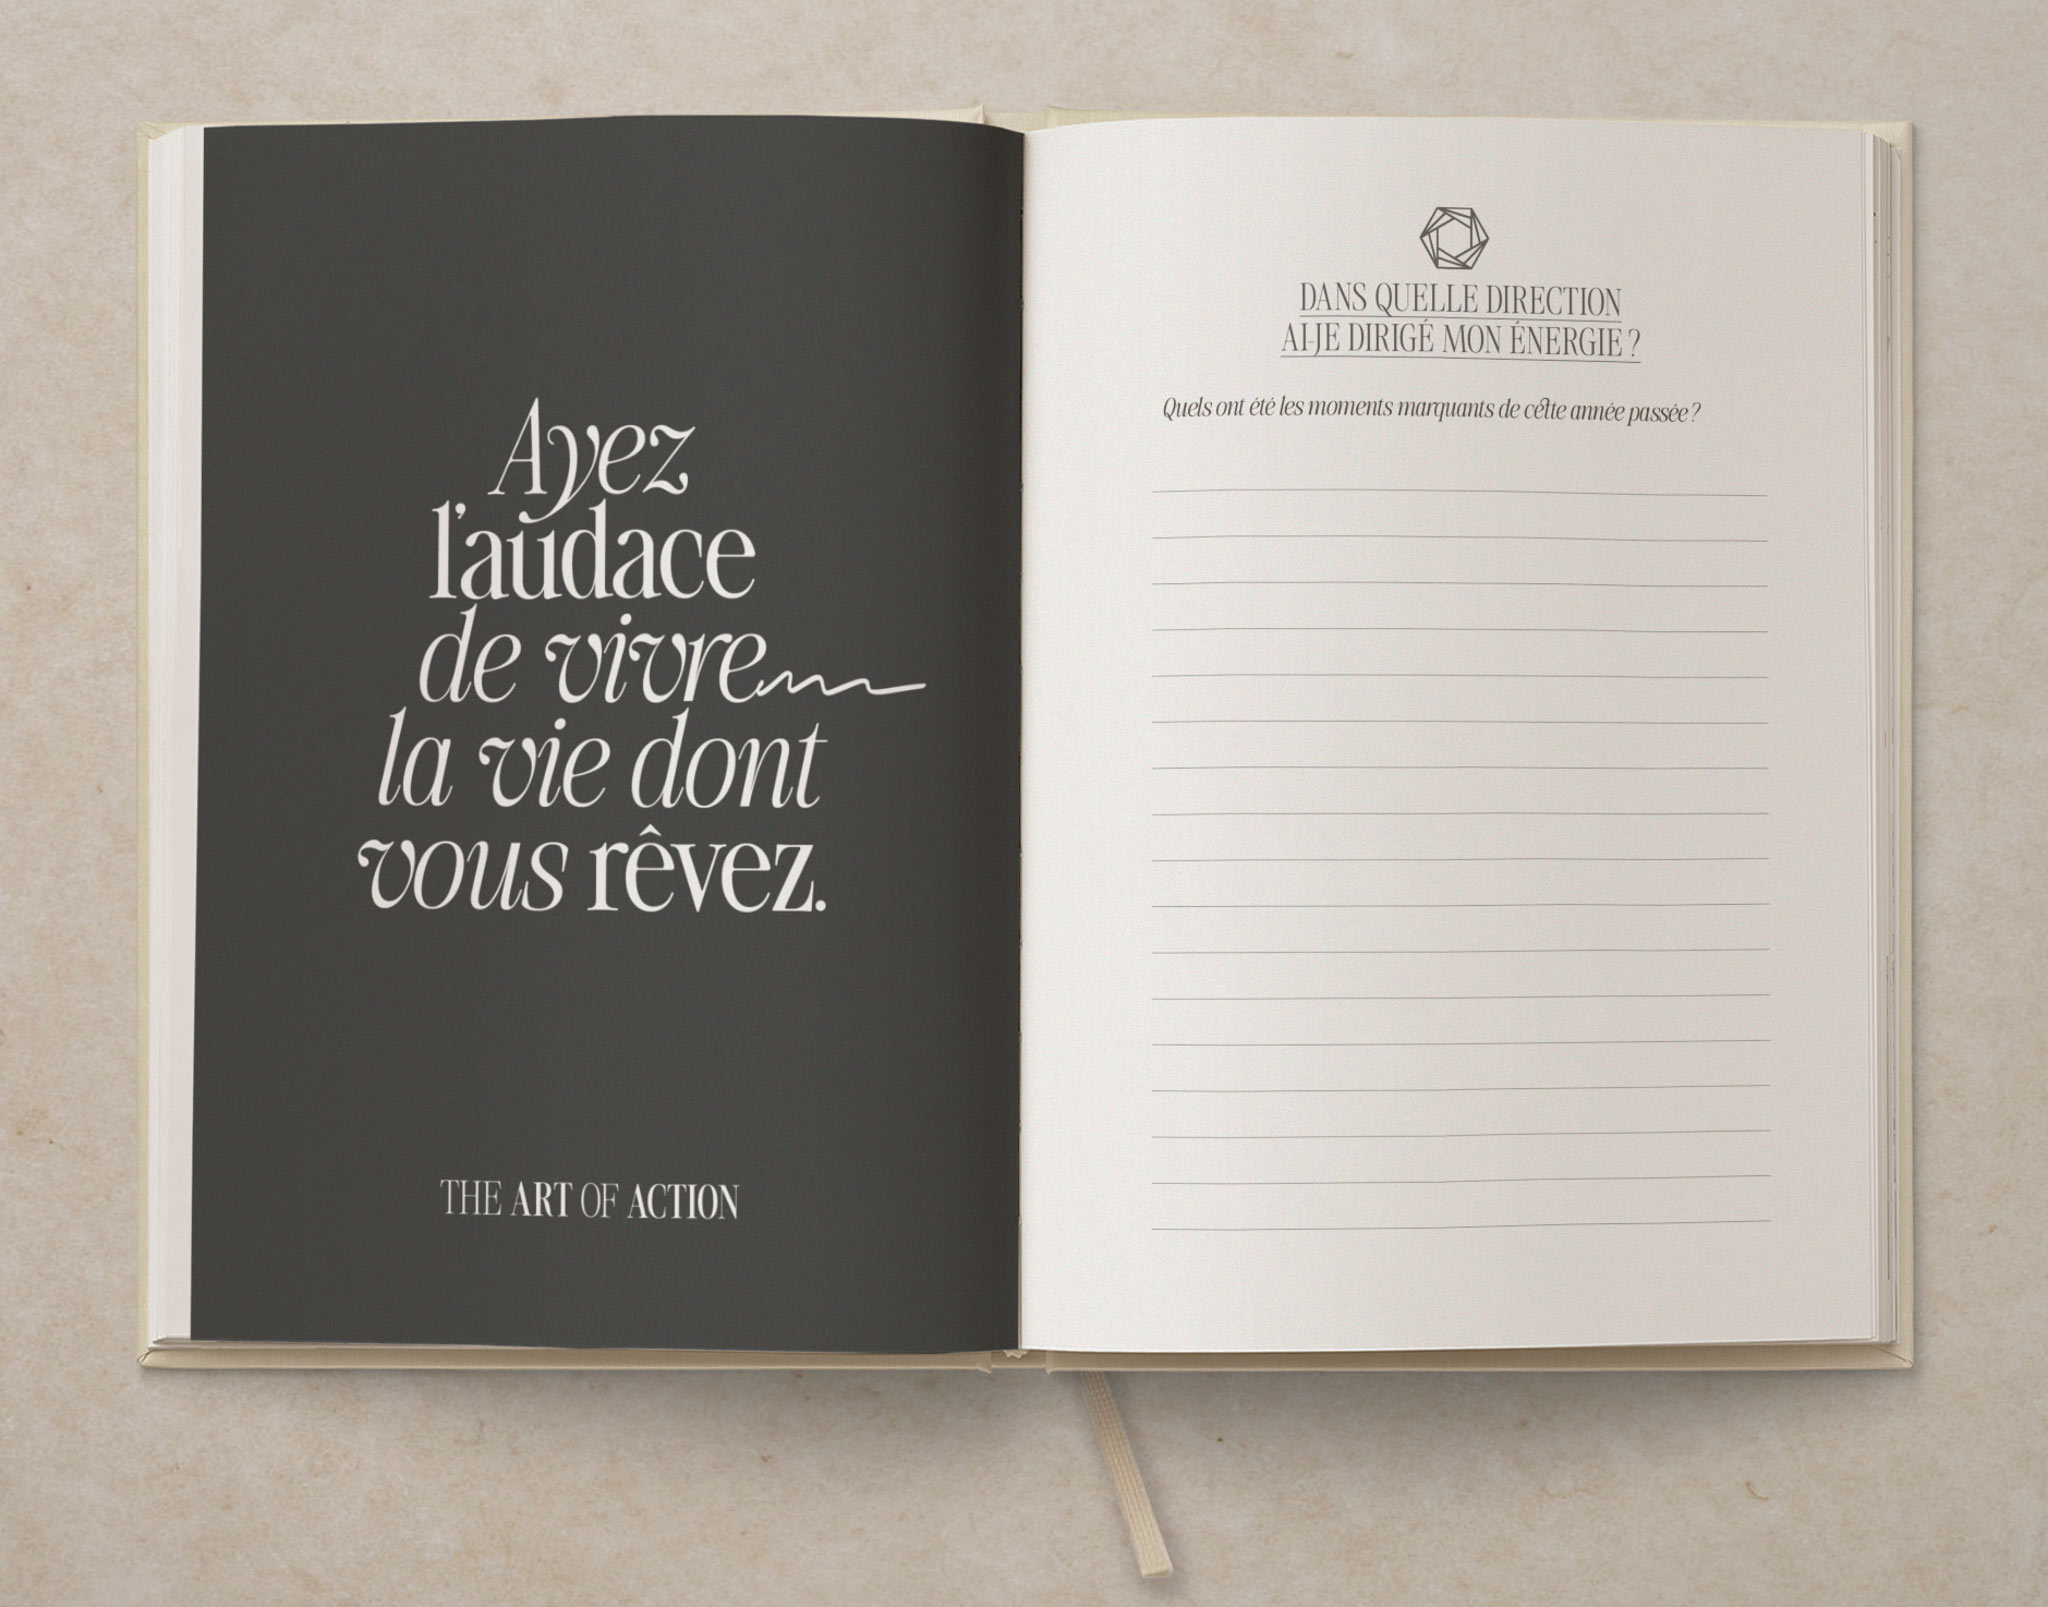 Ayez
l'audace
de vivre
la vie dont
vous rêvez.
THE ART OF ACTION
DANS QUELLE DIRECTION
AI-JE DIRIGÉ MON ÉNERGIE ?
Quels ont été les moments marquants de cette année passée ?